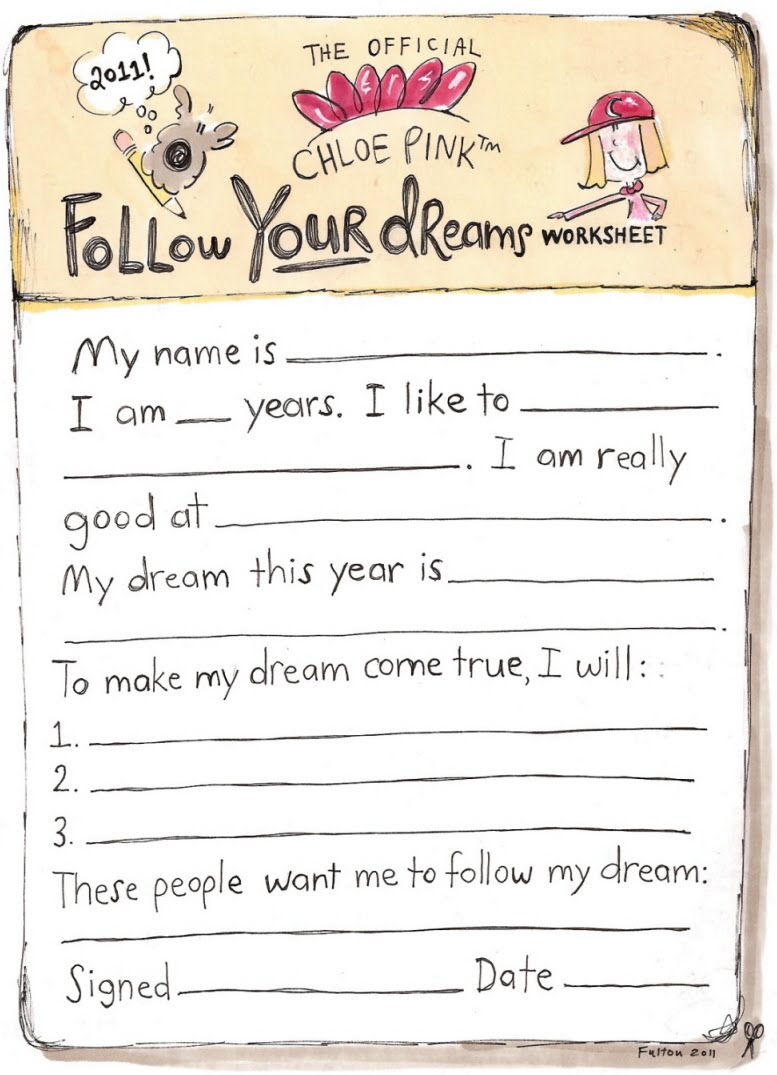 2011!
THE OFFICIAL
CHLOE PINK™
FOLLOW YOUR dReams WORKSHEET
My name is ____________________.
I am ___ years. I like to __________
____________________. I am really
good at ____________________.
My dream this year is ____________
____________________.
To make my dream come true, I will:
1. ____________________
2. ____________________
3. ____________________
These people want me to follow my dream:
____________________
Signed ______________ Date ________
Fulton 2011